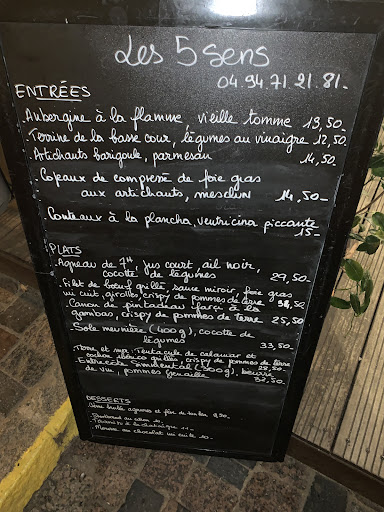 Les 5 sens
04.94.71.21.81.
ENTRÉES
. Aubergine à la flamme, vieille tomme 13,50.
. Terrine de la basse cour, légumes au vinaigre 12,50.
. Artichauts barigoule, parmesan
14,50.
. Copeaux de compressé de foie gras
aux artichauts, mesclun 14,50-
. Couteaux à la plancha, ventricina piccante
15-
PLATS
. Agneau de 7H, jus court, ail noir,
cocotte de légumes 29,50-
. Filet de bœuf grillé, sauce miroir, foie gras
mi cuit, girolles, crispy de pommes de terre
. Canon de pintadeau farçi à la
gambas, crispy de pommes de terre 25,50
. Sole meunière (400g), cocotte de
légumes 33,50-
. Terre et mer: Tentacule de calamar et
cochon ibérico grillés, crispy de pommes de terre
28,50-
. Entrecôte Simmental (300g), beurre
de vin, pommes grenaille
32,50-
DESSERTS
. Crème brulée agrumes et
. à la chataîgne 11-
. Mousse au chocolat mi cuite 10-